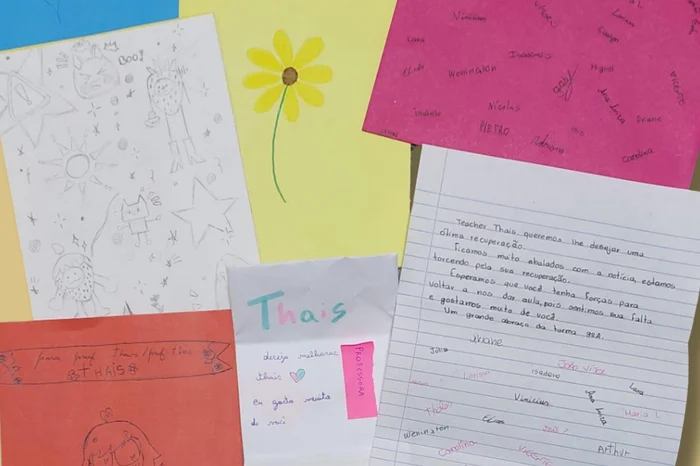 BOO!
Vinicius
Luana
Evelyn
Lara
Isadora
Elias
Wenington
Miguel
VICENTE
Ana Luiza
Nicolas
Oriane
PIETRO
Adriano
Carolina
Teacher Thais queremos lhe desejar uma
ótima recuperação.
Ficamos muito abalados com a notícia, estamos
torcendo pela sua recuperação.
Esperamos que você tenha forças para
voltar a nos dar aula, pois sentimos sua falta
e gostamos muito de você.
Um grande abraço da turma
João Vitor
Isadora
Lara
Vinicius
Ana Luiza
Maria L
Elias
Weninaton
Carolina
Arthur
Thais
desejo melhoras
thais
eu gosto muito
de você
PROFESSORA
para prof Thais/prof thai
THAIS